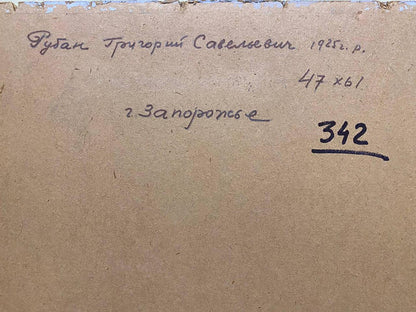 Рубан Григорий Савельевич 1925г.р.
47 х61
г. Запорожье
342